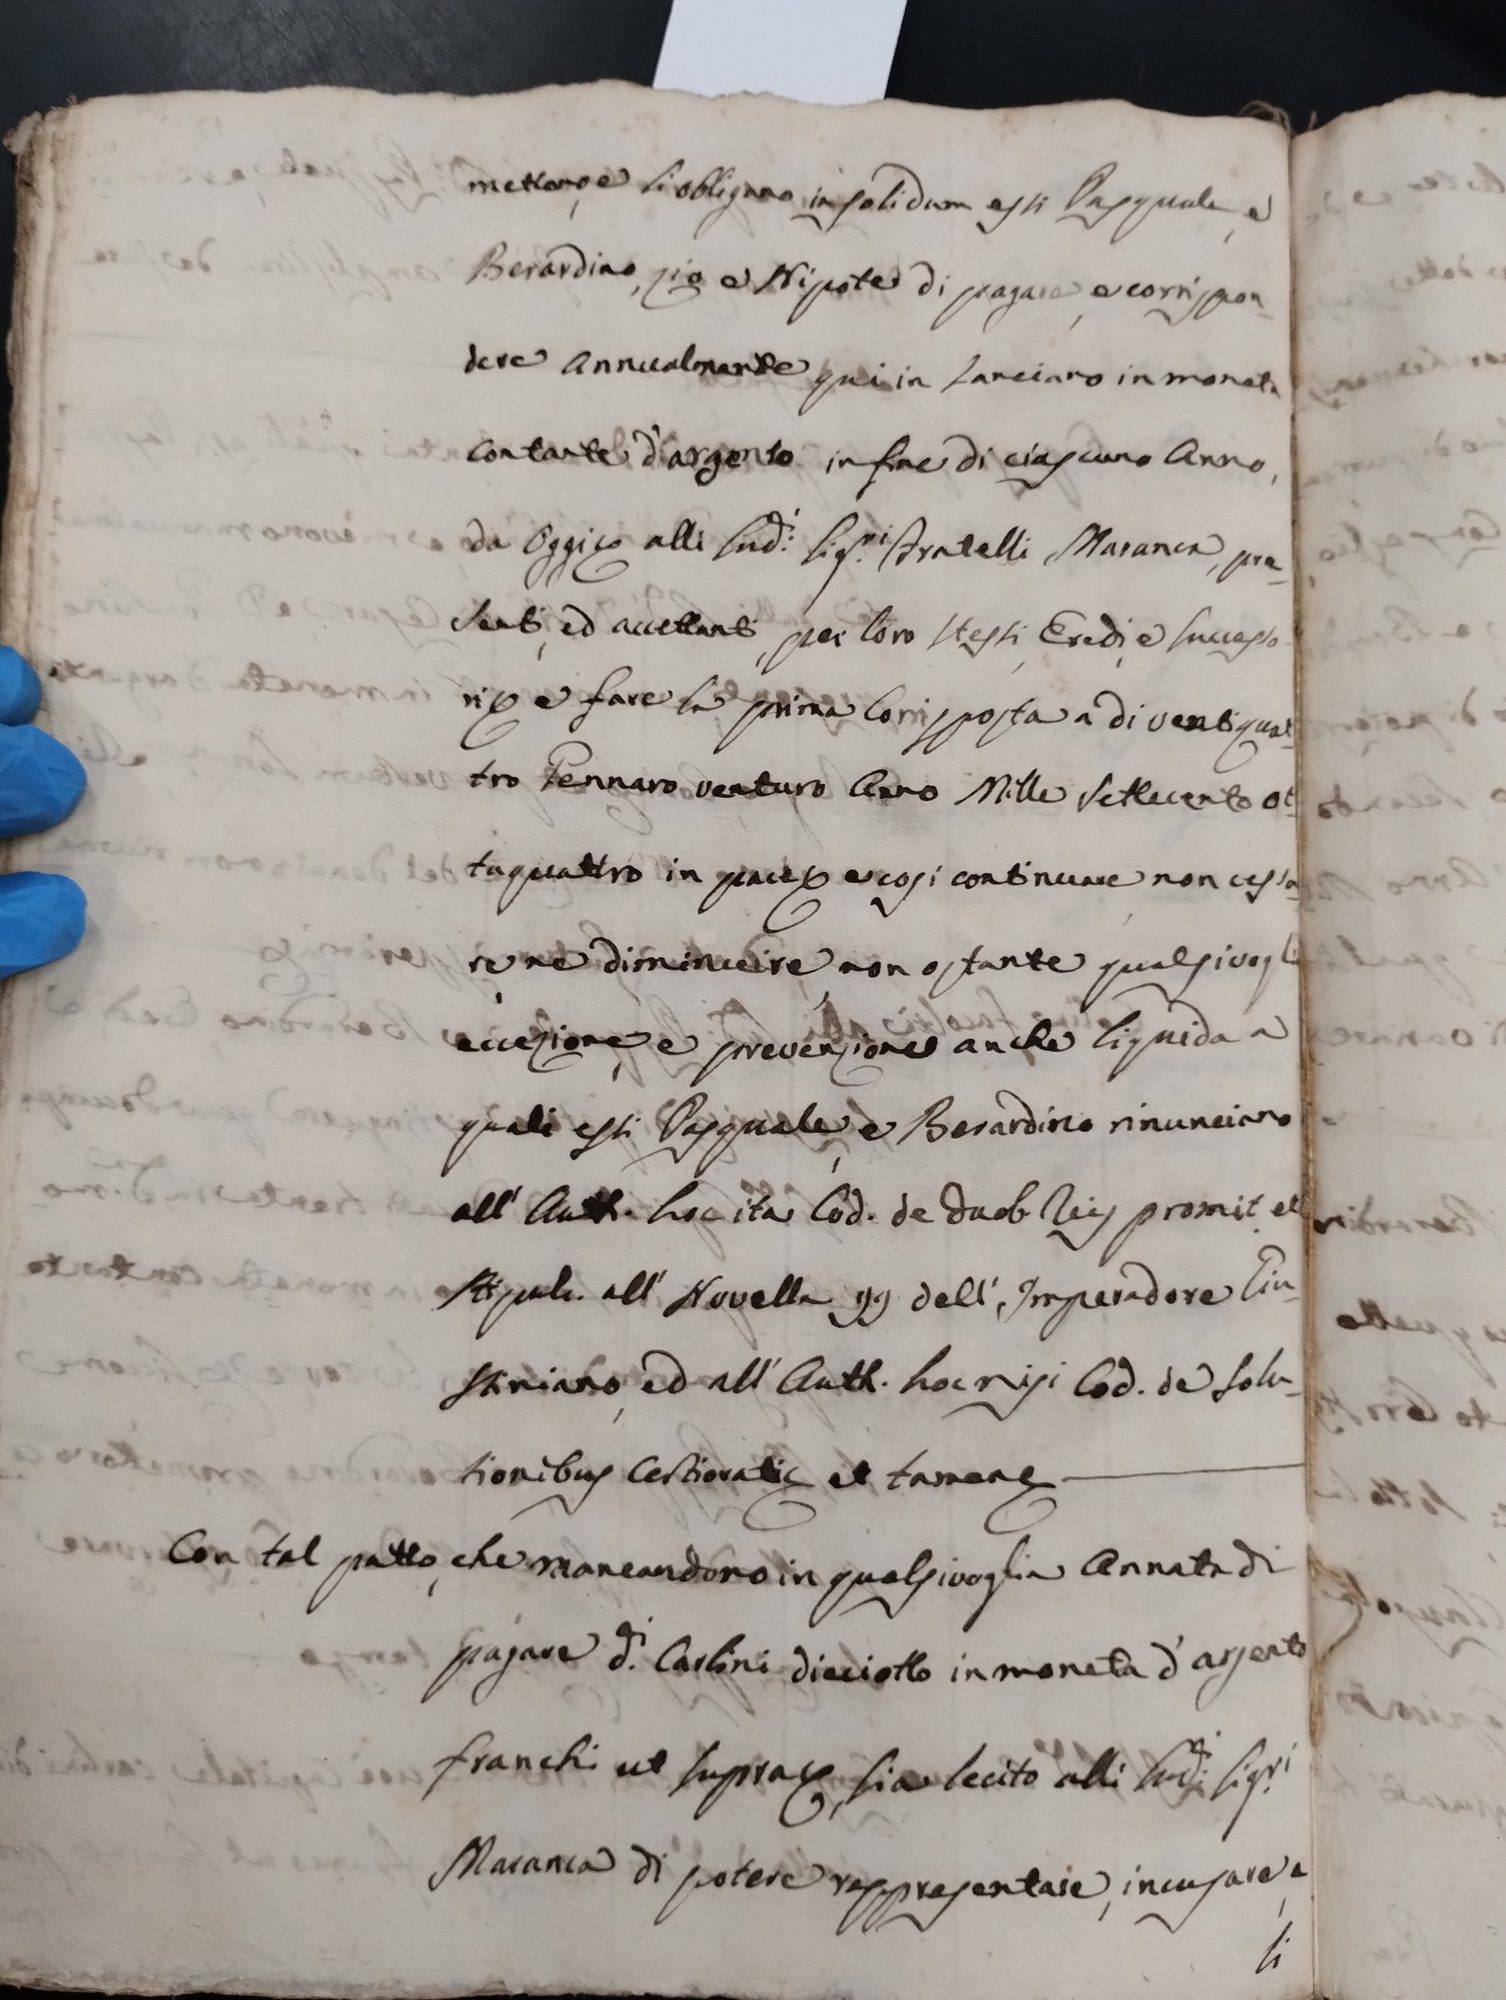 mettono, e si obbligano in solidum essi Pasquale, e
Berardino, zio e Nipote di pagare, e corrispon-
dere Annualmente qui in Lanciano in moneta
contante d'argento in fine di ciascuno Anno,
da Oggi &c alli sud.i Sig.ri Fratelli Maranca, pre-
senti, ed accettanti, per loro stessi, Eredi, e Successo-
ri &c e fare la prima Corrisposta a di ventiquat-
tro Gennaro venturo Anno Mille Settecento ot-
taquattro in pace &c e così continuare non cessa-
re, ne diminuire, non ostante qualsivogli
eccezione, e prevenzione anche liquida a
quali essi Pasquale, e Berardino rinunciano
all' Auth. hoc ita Cod. de duob. Reis promit. et
stipul. all' Novella 99 dell' Imperadore Giu-
stiniano, ed all' Auth. hoc nisi Cod. de Solu-
tionibus certiorati &c et tamen &c
Con tal patto, che mancandono in qualsivoglia Annata di
pagare d.i Carlini dieciotto in moneta d'argento
franchi ut supra &c, sia lecito alli sud.i Sig.ri
Maranca di potere rappresentare, incusare, e
li